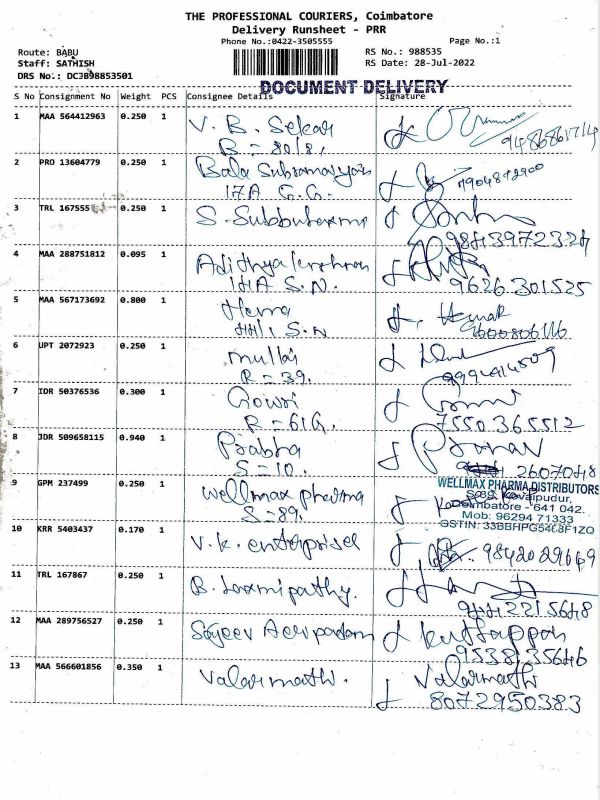 THE PROFESSIONAL COURIERS, Coimbatore
Delivery Runsheet - PRR
Phone No.:0422-3505555
Page No.:1
Route: BABU
RS No.: 988535
Staff: SATHISH
RS Date: 28-Jul-2022
DRS No.: DCJB98853501
DOCUMENT DELIVERY
S No Consignment No Weight PCS Consignee Details Signature
1 MAA 564412963 0.250 1 V. B. Sekar
2 PRO 13604779 0.250 1 Bala
17A G.G. 7904872900
3 TRL 167555 0.250 1
4 MAA 288751812 0.095 1
S.N. 9626301525
5 MAA 567173692 0.800 1 Hema
S.N
6 UPT 2072923 0.250 1 mullai
R = 39.
7 IDR 50376536 0.300 1 Gowri
R = 61G. 7550365512
8 JDR 509658115 0.940 1 Prabha
S = 10.
9 GPM 237499 0.250 1 wellmax pharma
S = 89.
WELLMAX PHARMA DISTRIBUTORS
S-89, Kovaipudur,
Coimbatore - 641 042.
Mob: 96294 71333
10 KRR 5403437 0.170 1 V.K. enterprises 9842029669
11 TRL 167867 0.250 1 B. Laxmipathy.
12 MAA 289756527 0.250 1 Kuttappan
13 MAA 566601856 0.350 1 Valarmathi. Valarmathi
8072950383